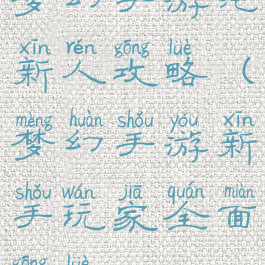 梦幻手游纯
xīn rén gōng lüè
新人攻略（
mèng huàn shǒu yóu xīn
梦幻手游新
shǒu wán jiā quán miàn
手玩家全面
gōng lüè